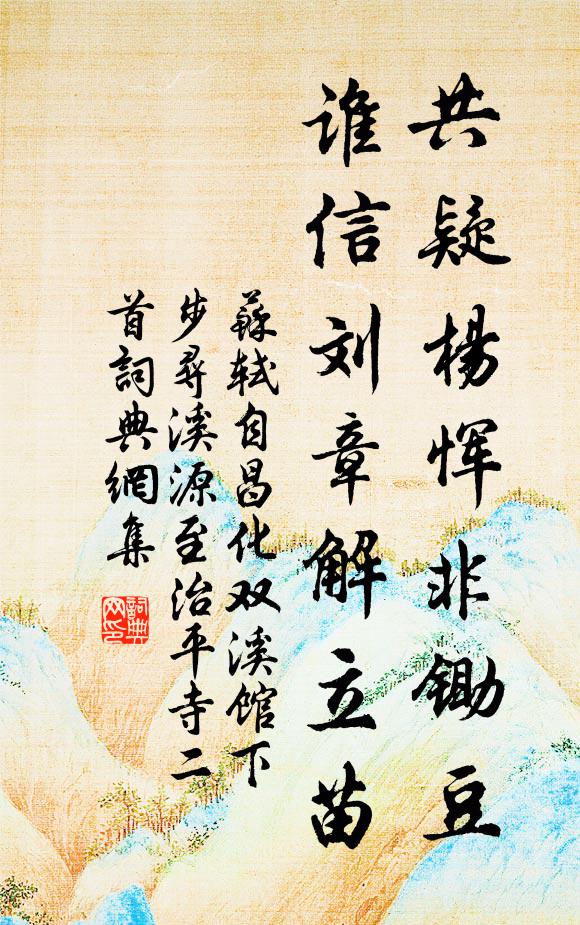 共疑杨恽非锄豆
谁信刘章解立苗
蘇軾自昌化双溪馆下
步尋溪源至治平寺二
首詞典網集
詞典
网印